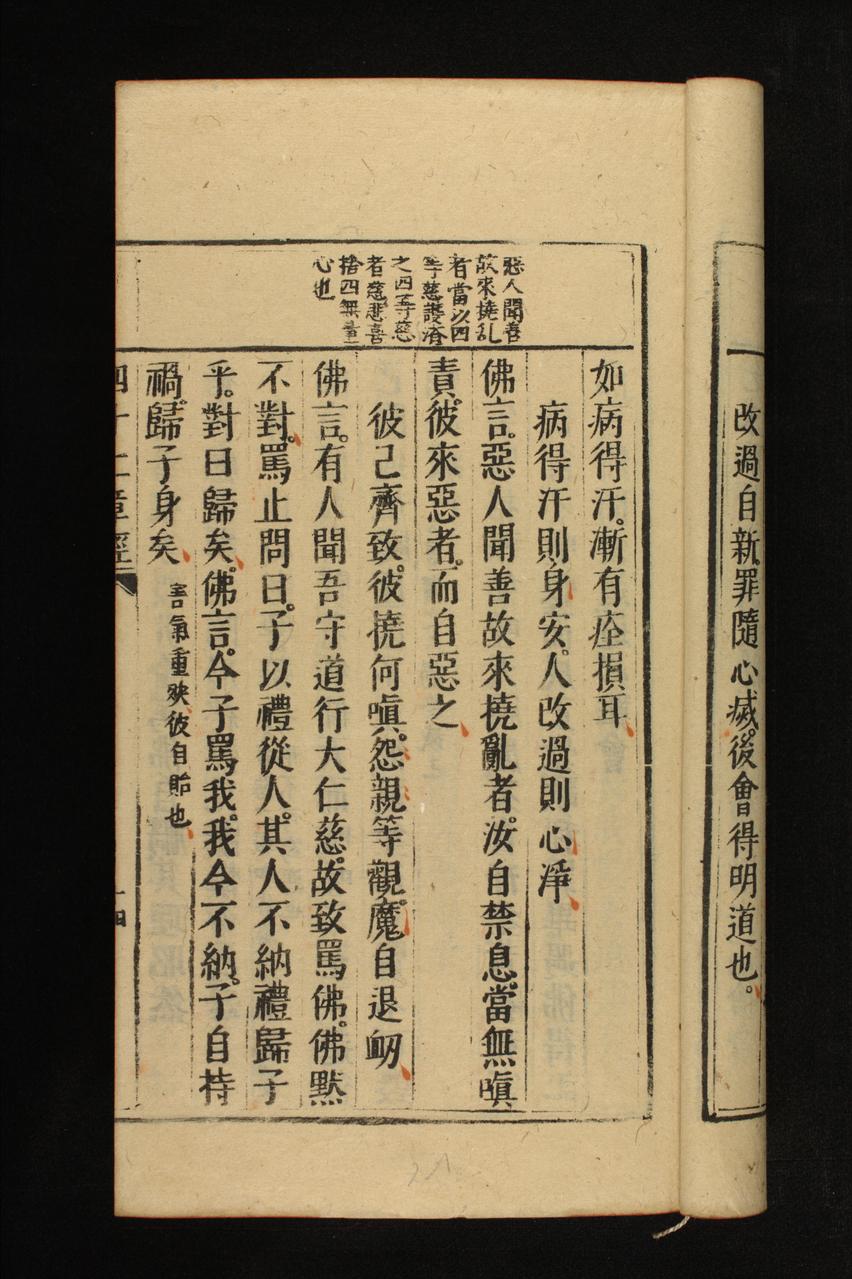 改過自新。罪隨心滅。後會得明道也。
惡人聞善
故來撓乱
者當以四
等慈護濟
之四等慈
者慈悲喜
捨四無量
心也
如病得汗。漸有痊損耳、
病得汗則身安。人改過則心淨、
佛言。惡人聞善故來撓亂者。汝自禁息。當無嗔
責。彼來惡者。而自惡之、
彼己齊致。彼撓何嗔。怨親等觀。魔自退衂、
佛言。有人聞吾守道行大仁慈。故致罵佛。佛默
不對。罵止問曰。子以禮從人。其人不納。禮歸子
乎。對曰歸矣。佛言。今子罵我。我今不納。子自持
禍。歸子身矣、
害氣重殃彼自貽也、
四十二章經
十四